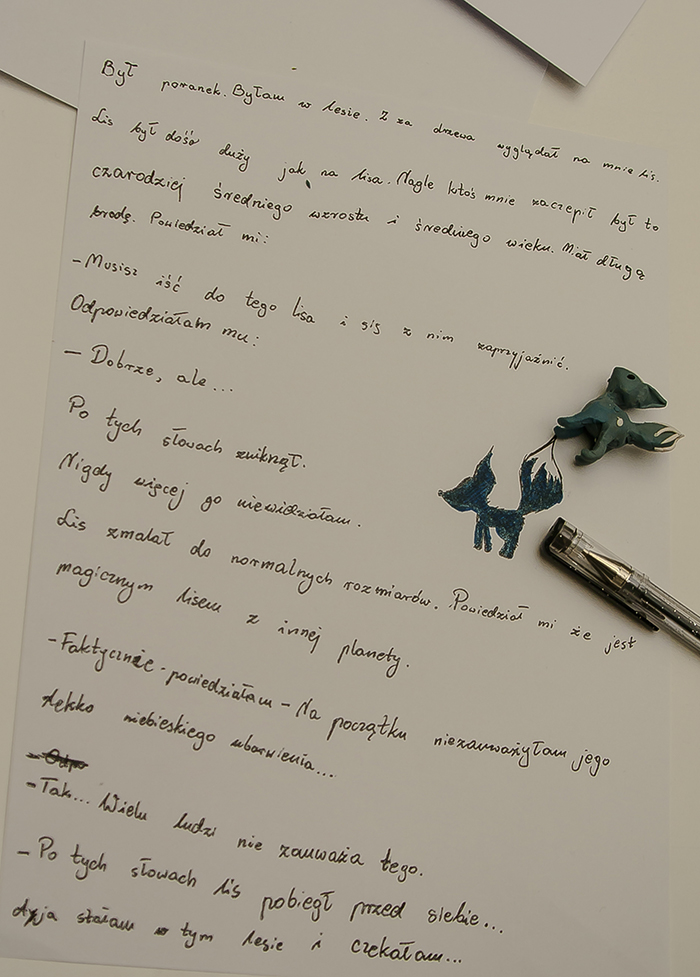 Był poranek. Byłam w lesie. Z za drzewa wyglądał na mnie lis.
Lis był dość duży jak na lisa. Nagle ktoś mnie zaczepił był to
czarodziej średniego wzrostu i średniego wieku. Miał długą
brodę. Powiedział mi:
- Musisz iść do tego lisa i się z nim zaprzyjaźnić.
Odpowiedziałam mu:
- Dobrze, ale...
Po tych słowach zniknął.
Nigdy więcej go niewidziałam.
Lis zmalał do normalnych rozmiarów. Powiedział mi że jest
magicznym lisem z innej planety.
- Faktycznie - powiedziałam - Na początku niezauważyłam jego
lekko niebieskiego ubarwienia...
- Tak... Wielu ludzi nie zauważa tego.
- Po tych słowach lis pobiegł przed siebie...
A ja stałam w tym lesie i czekałam...